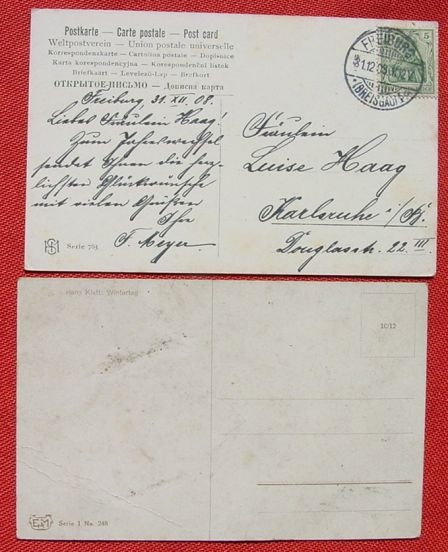 Postkarte — Carte postale — Post card
Weltpostverein — Union postale universelle
Korrespondenzkarte — Cartolina postale — Dopisnice
Karta korespondencyjna — Korespondenční listek
Briefkaart — Levelező-Lap — Brefkort
ОТКРЫТОЕ ПИСЬМО — Дописна карта
FREIBURG
(BREISGAU)
5
Freiburg, 31. XII. 08.
Liebes Fräulein Haag!
Zum Jahreswechsel
sendet Ihnen die herz-
lichsten Glückwünsche
mit vielen Grüßen
Ihr
F. Meyer.
Fräulein
Luise Haag
Karlsruhe i/B.
Douglasstr. 22 III
Serie 761
Hans Klatt: Wintertag
10/12
EM
Serie I No. 248